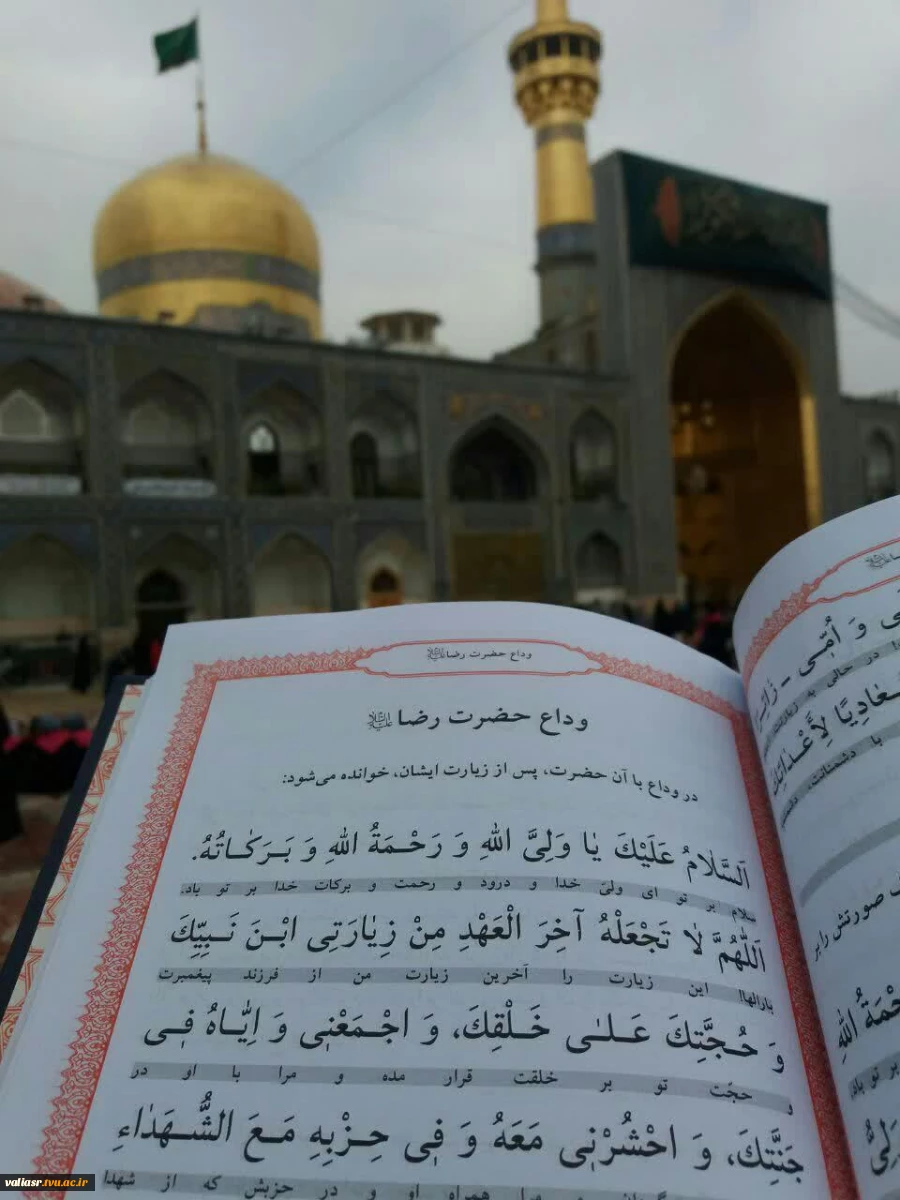 وداع حضرت رضا
وداع حضرت رضا
در وداع با آن حضرت، پس از زیارت ایشان، خوانده می‌شود:
اَلسَّلٰامُ عَلَيْكَ يٰا وَلِيَّ اللهِ وَ رَحْـمَةُ اللهِ وَ بَـرَكٰـاتُهُ.
سلام بر تو ای ولیّ خدا و درود و رحمت و برکات خدا بر تو باد.
اَللّٰهُمَّ لٰا تَجْعَلْهُ آخِرَ الْعَهْدِ مِنْ زِيٰارَتِي ابْـنَ نَـبِيِّكَ
بارالها! این زیارت را آخرین زیارت من از فرزند پیغمبرت
وَ حُـجَّتِكَ عَـلـٰى خَـلْقِكَ، وَ اجْـمَعْنِي وَ اِيّٰـاهُ فِـي
و حجّت تو بر خلقت قرار مده و مرا با او در
جَنَّتِكَ، وَ احْشُرْنِي مَعَهُ وَ فِي حِـزْبِهِ مَـعَ الشُّـهَدٰاءِ
و مرا همراه او و در حزبش که از شهدا
ى وَ اُمّـي -
در حالی به زیارت
با دشمنانت،
صورتش را بر
اللهِ
بر تو باد
valiasr.tvu.ac.ir